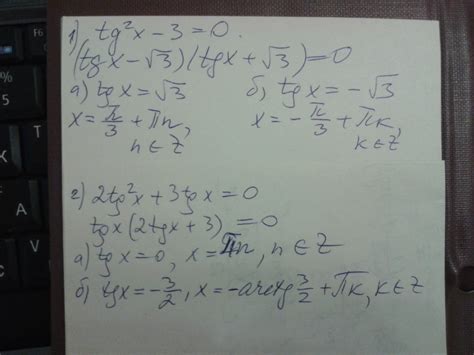 1) tg²x - 3 = 0.
(tgx - √3)(tgx + √3) = 0
а) tgx = √3 б) tgx = -√3
x = π/3 + πn, x = -π/3 + πk,
n ∈ Z k ∈ Z
2) 2tg²x + 3tgx = 0
tgx(2tgx + 3) = 0
а) tgx = 0, x = πn, n ∈ Z
б) tgx = -3/2, x = -arctg 3/2 + πk, k ∈ Z